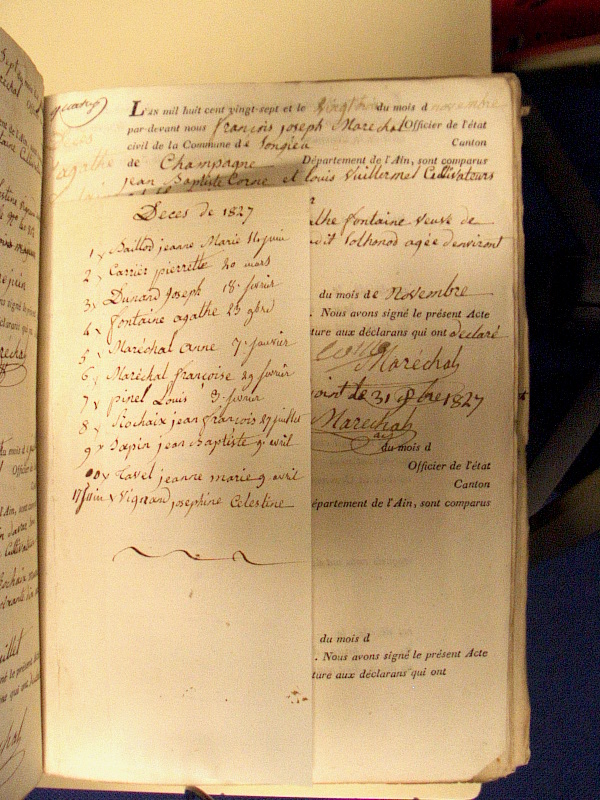 L'an mil huit cent vingt-sept et le vingt trois du mois d novembre
par-devant nous françois joseph Maréchal Officier de l'état
civil de la Commune de Songieu Canton
de Champagne Département de l'Ain, sont comparus
jean Baptiste Corne et Louis Vuillermet Cultivateurs
Deces
agathe
Deces de 1827
1 Baillod jeanne Marie 14 juin
2 Carrier pierrette 20 mars
3 Dunand joseph 18 fevrier
4 fontaine agathe 23 gbre
5 Maréchal anne 7 janvier
6 Maréchal françoise 29 fevrier
7 pinel Louis 3 fevrier
8 Rochaix jean françois 27 juillet
9 Sapin jean Baptiste 9 avril
10 Tavel jeanne marie 9 avril
17 juin Vignand josephine Celestine
athe fontaine veuve de
dit Jolhonod agée d'environt
du mois de Novembre
. Nous avons signé le présent Acte
ture aux déclarans qui ont declaré
Maréchal
de 31 Xbre 1827
Marechal
du mois d
Officier de l'état
Canton
épartement de l'Ain, sont comparus
du mois d
. Nous avons signé le présent Acte
ture aux déclarans qui ont